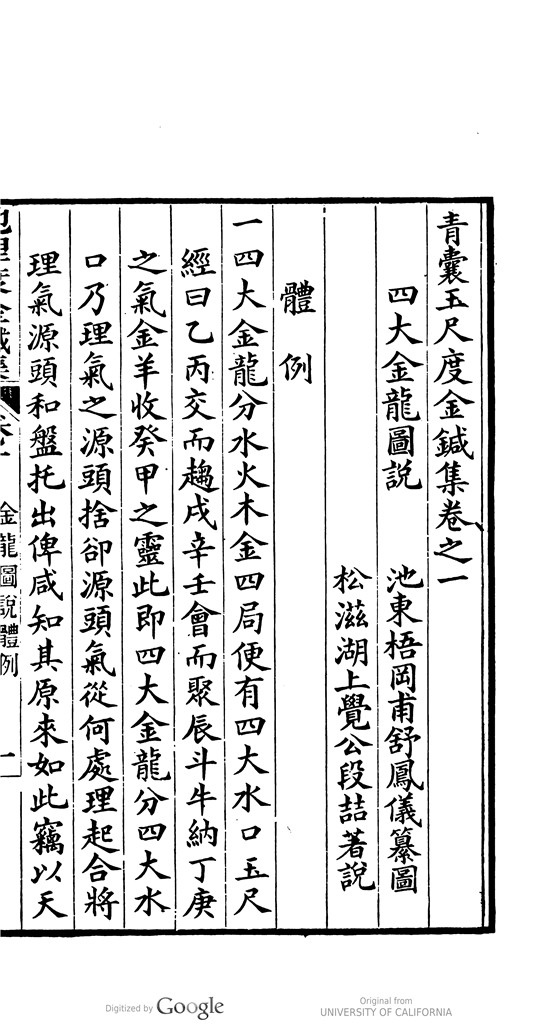 青囊玉尺度金鍼集卷之一
四大金龍圖說
池東梧岡甫舒鳳儀纂圖
松滋湖上覺公段喆著說
體例
一四大金龍分水火木金四局便有四大水口玉尺
經曰乙丙交而趨戌辛壬會而聚辰斗牛納丁庚
之氣金羊收癸甲之靈此即四大金龍分四大水
口乃理氣之源頭捨卻源頭氣從何處理起合將
理氣源頭和盤托出俾咸知其原來如此竊以天
金龍圖說體例
一
Digitized by Google
Original from
UNIVERSITY OF CALIFORNIA